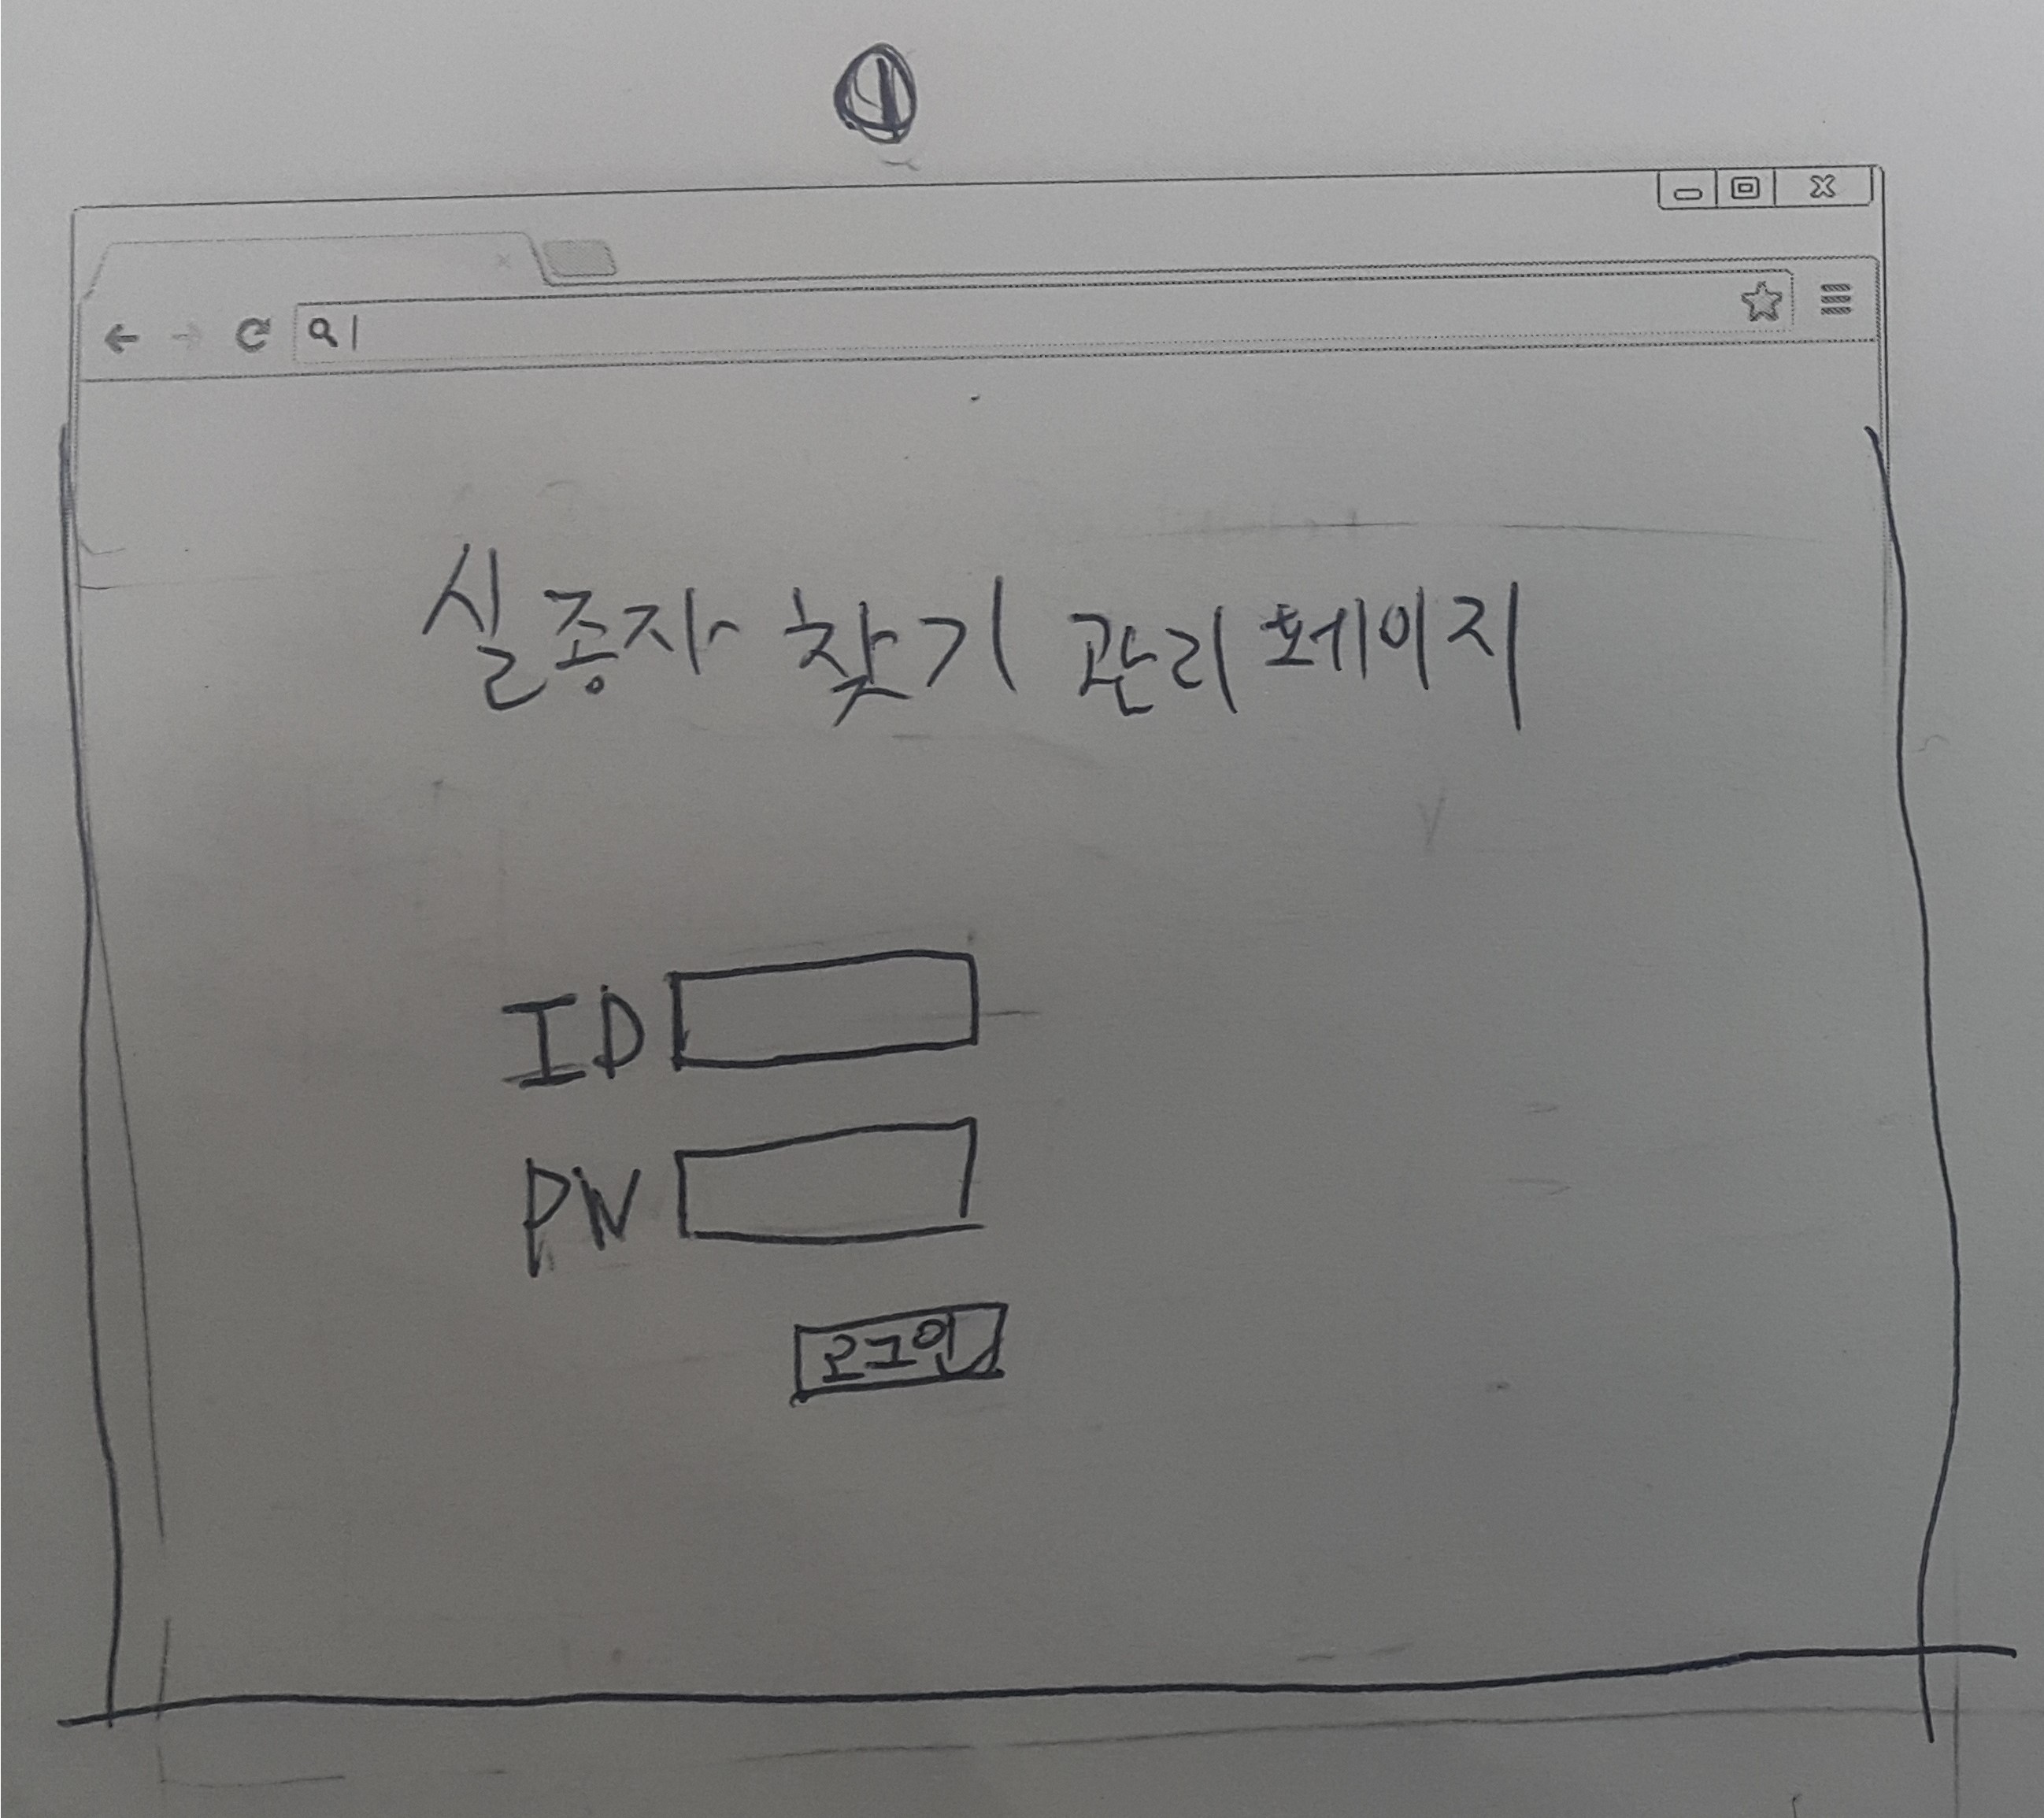 ①
실종자 찾기 관리페이지
ID
PW
로그인